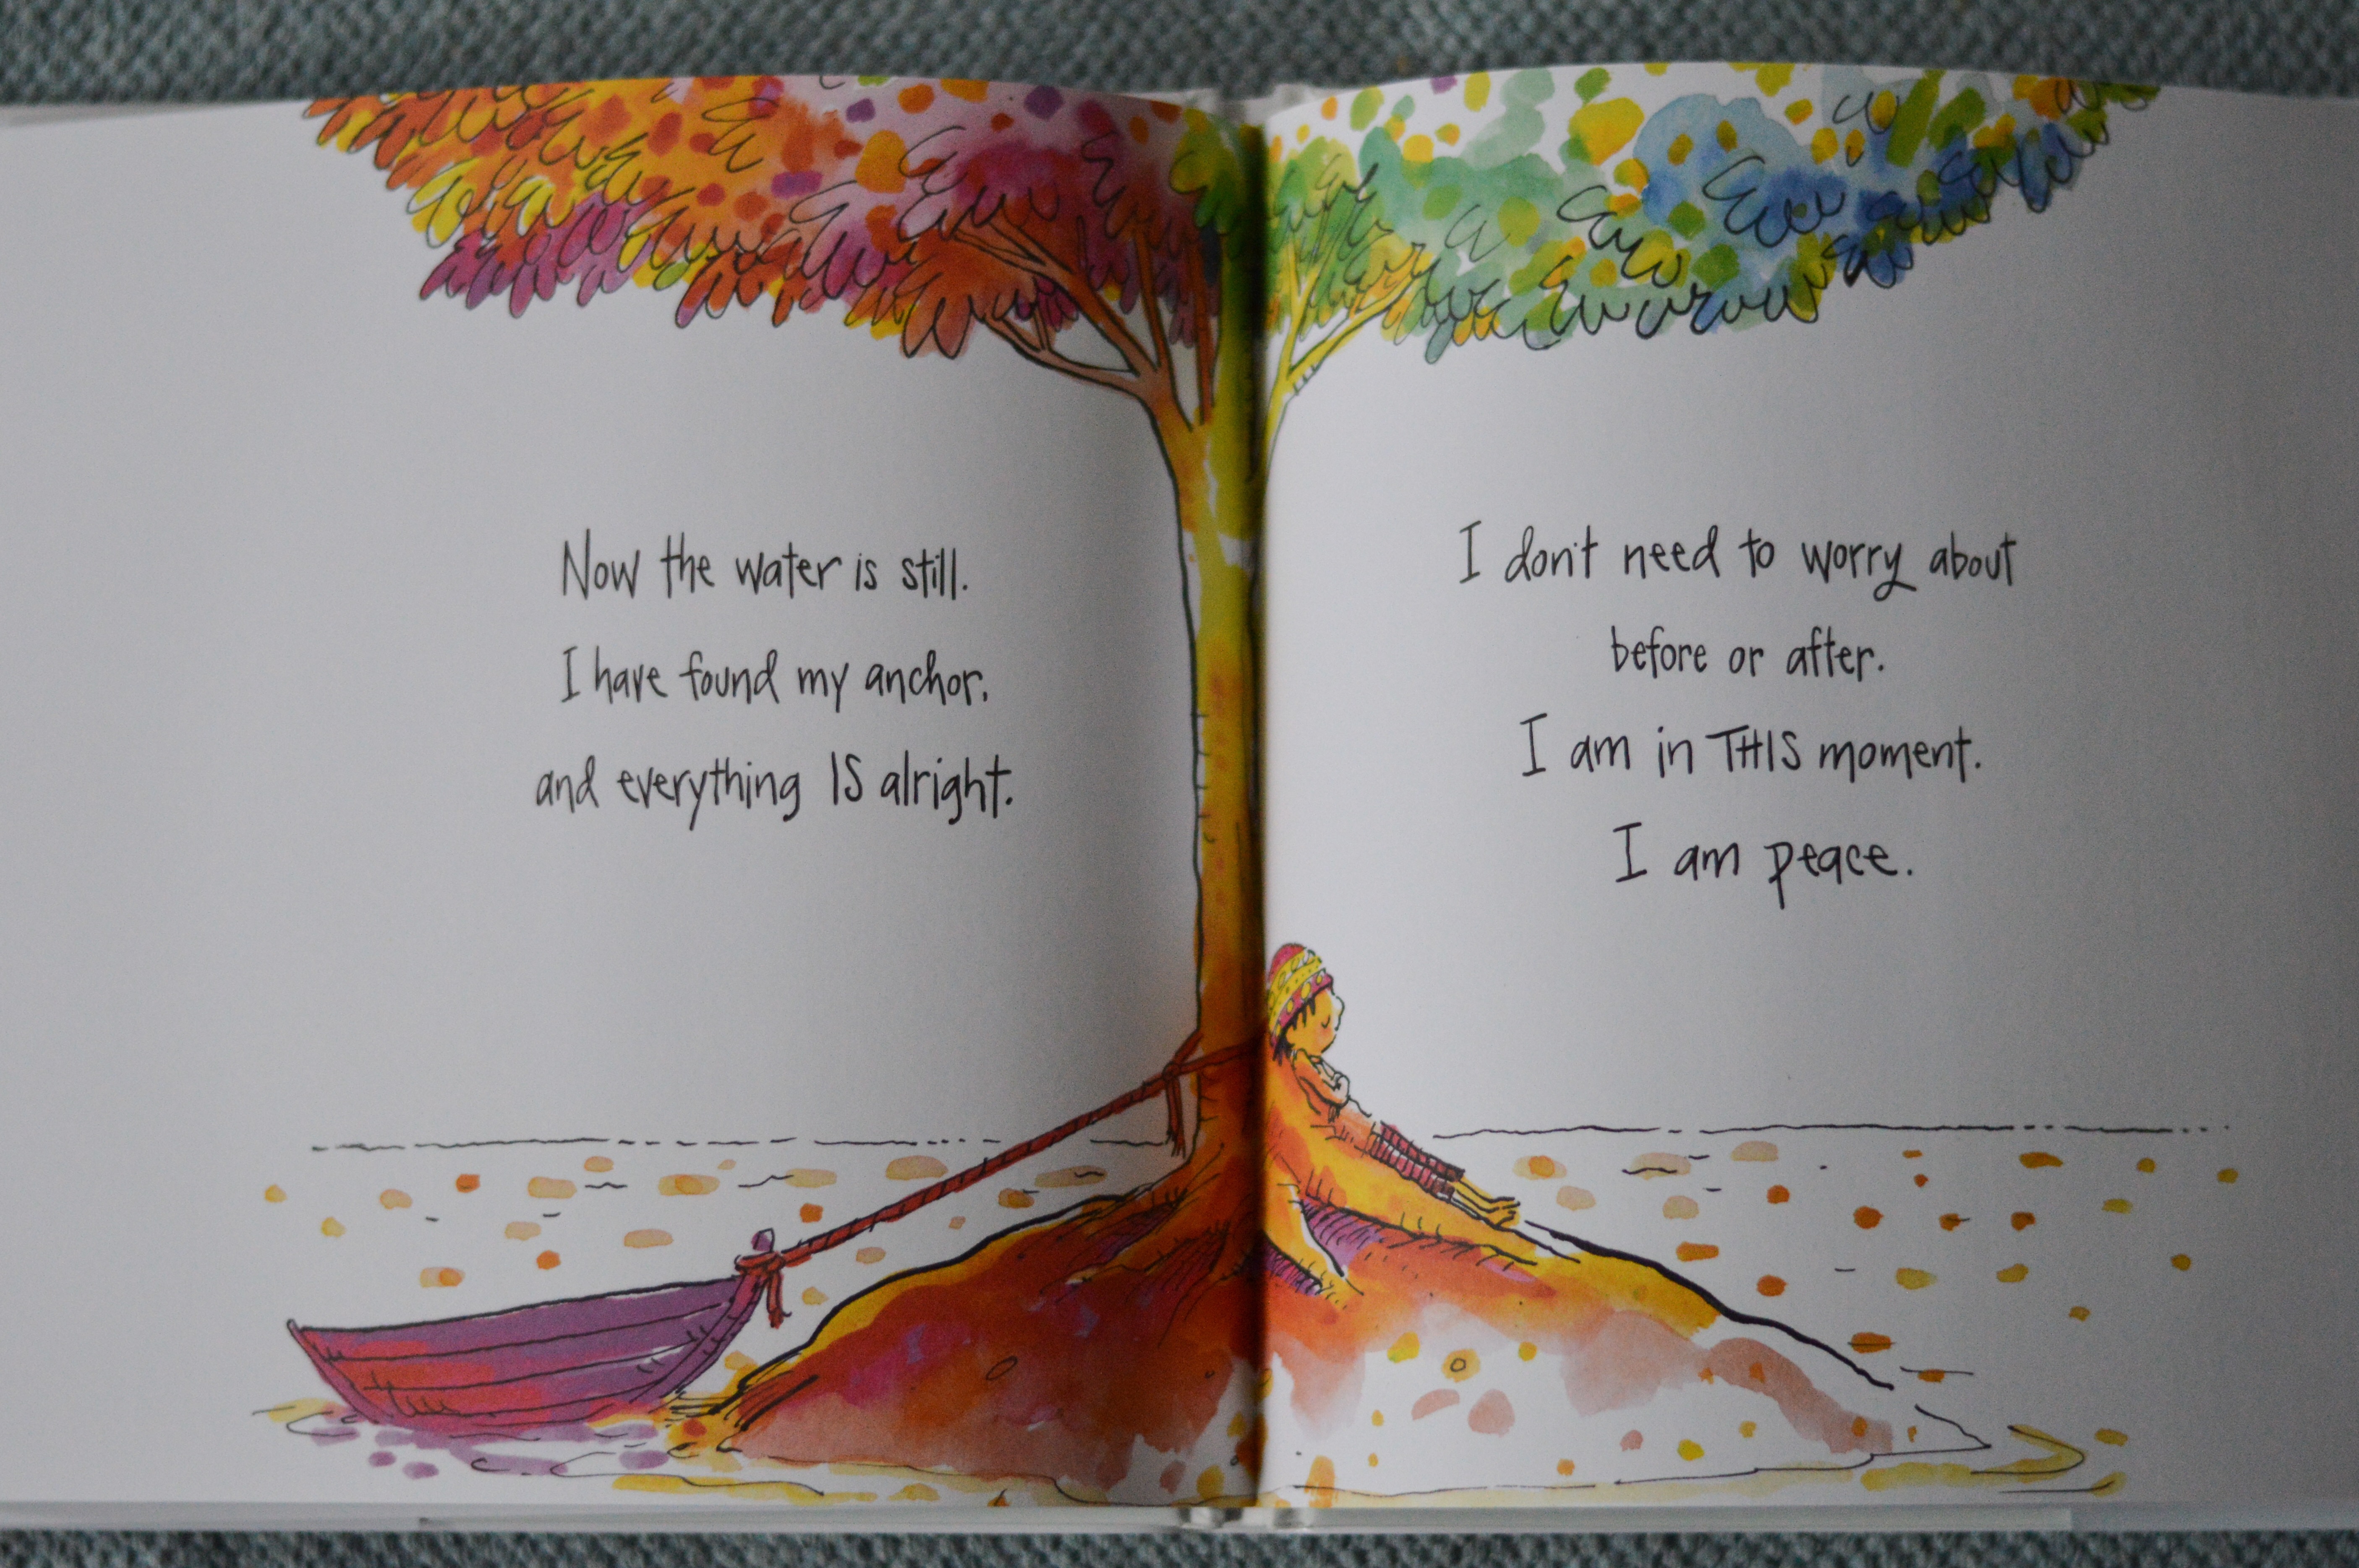 Now the water is still.
I have found my anchor,
and everything IS alright.
I don't need to worry about
before or after.
I am in THIS moment.
I am peace.